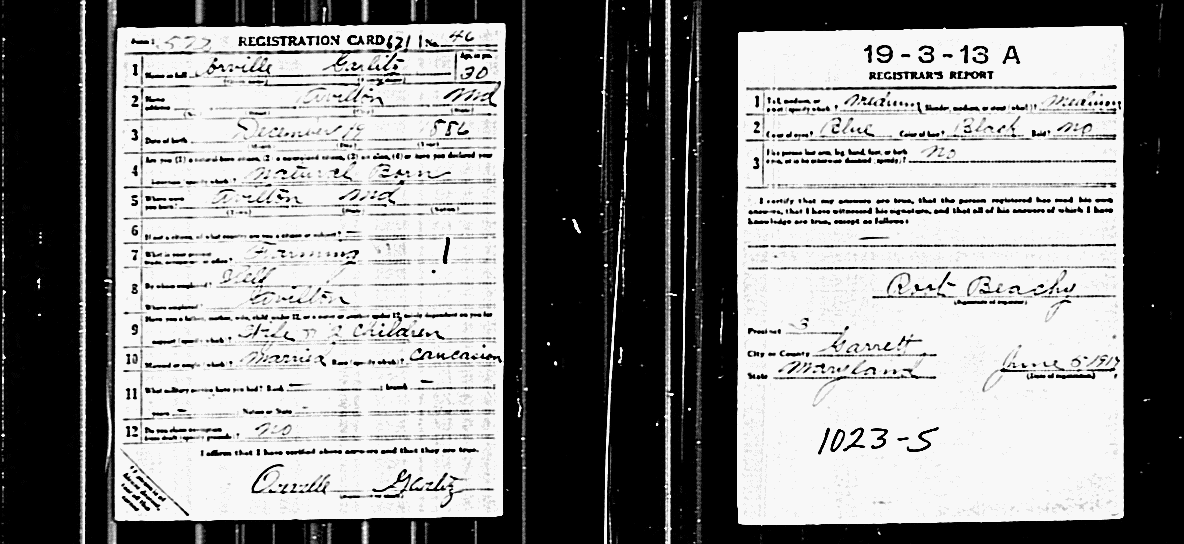 Form 1 577 REGISTRATION CARD 621 No. 46
1 Name in full Orville Garlitz Age, in yrs. 30
2 Home address Avilton Md
3 Date of birth December 19 1886
4 Are you (1) a natural born citizen, (2) a naturalized citizen, (3) an alien, (4) or have you declared your
intention (specify which)? Natural Born
5 Where were you born? Avilton Md
(Town) (State) (Nation)
6 If not a citizen, of what country are you a citizen or subject? —
7 What is your present trade, occupation, or office? Farming 1
8 By whom employed? Self
Where employed? Avilton
9 Have you a father, mother, wife, child under 12, or a sister or brother under 12, solely dependent on you for
support (specify which)? Wife & 2 children
10 Married or single (which)? Married Race (specify which)? Caucasion
11 What military service have you had? Rank — ; branch — ;
years — ; Nation or State —
12 Do you claim exemption from draft (specify grounds)? No
I affirm that I have verified above answers and that they are true.
Orville Garlitz
19-3-13 A
REGISTRAR'S REPORT
1 Tall, medium, or short (specify which)? Medium Slender, medium, or stout (which)? Medium
2 Color of eyes? Blue Color of hair? Black Bald? No
3 Has person lost arm, leg, hand, foot, or both eyes, or is he otherwise disabled (specify)? No
I certify that my answers are true, that the person registered has read his own
answers, that I have witnessed his signature, and that all of his answers of which I have
knowledge are true, except as follows:
—
Robt Beachy
(Signature of registrar)
Precinct 3
City or County Garrett
State Maryland June 5 1917
(Date of registration)
1023-5